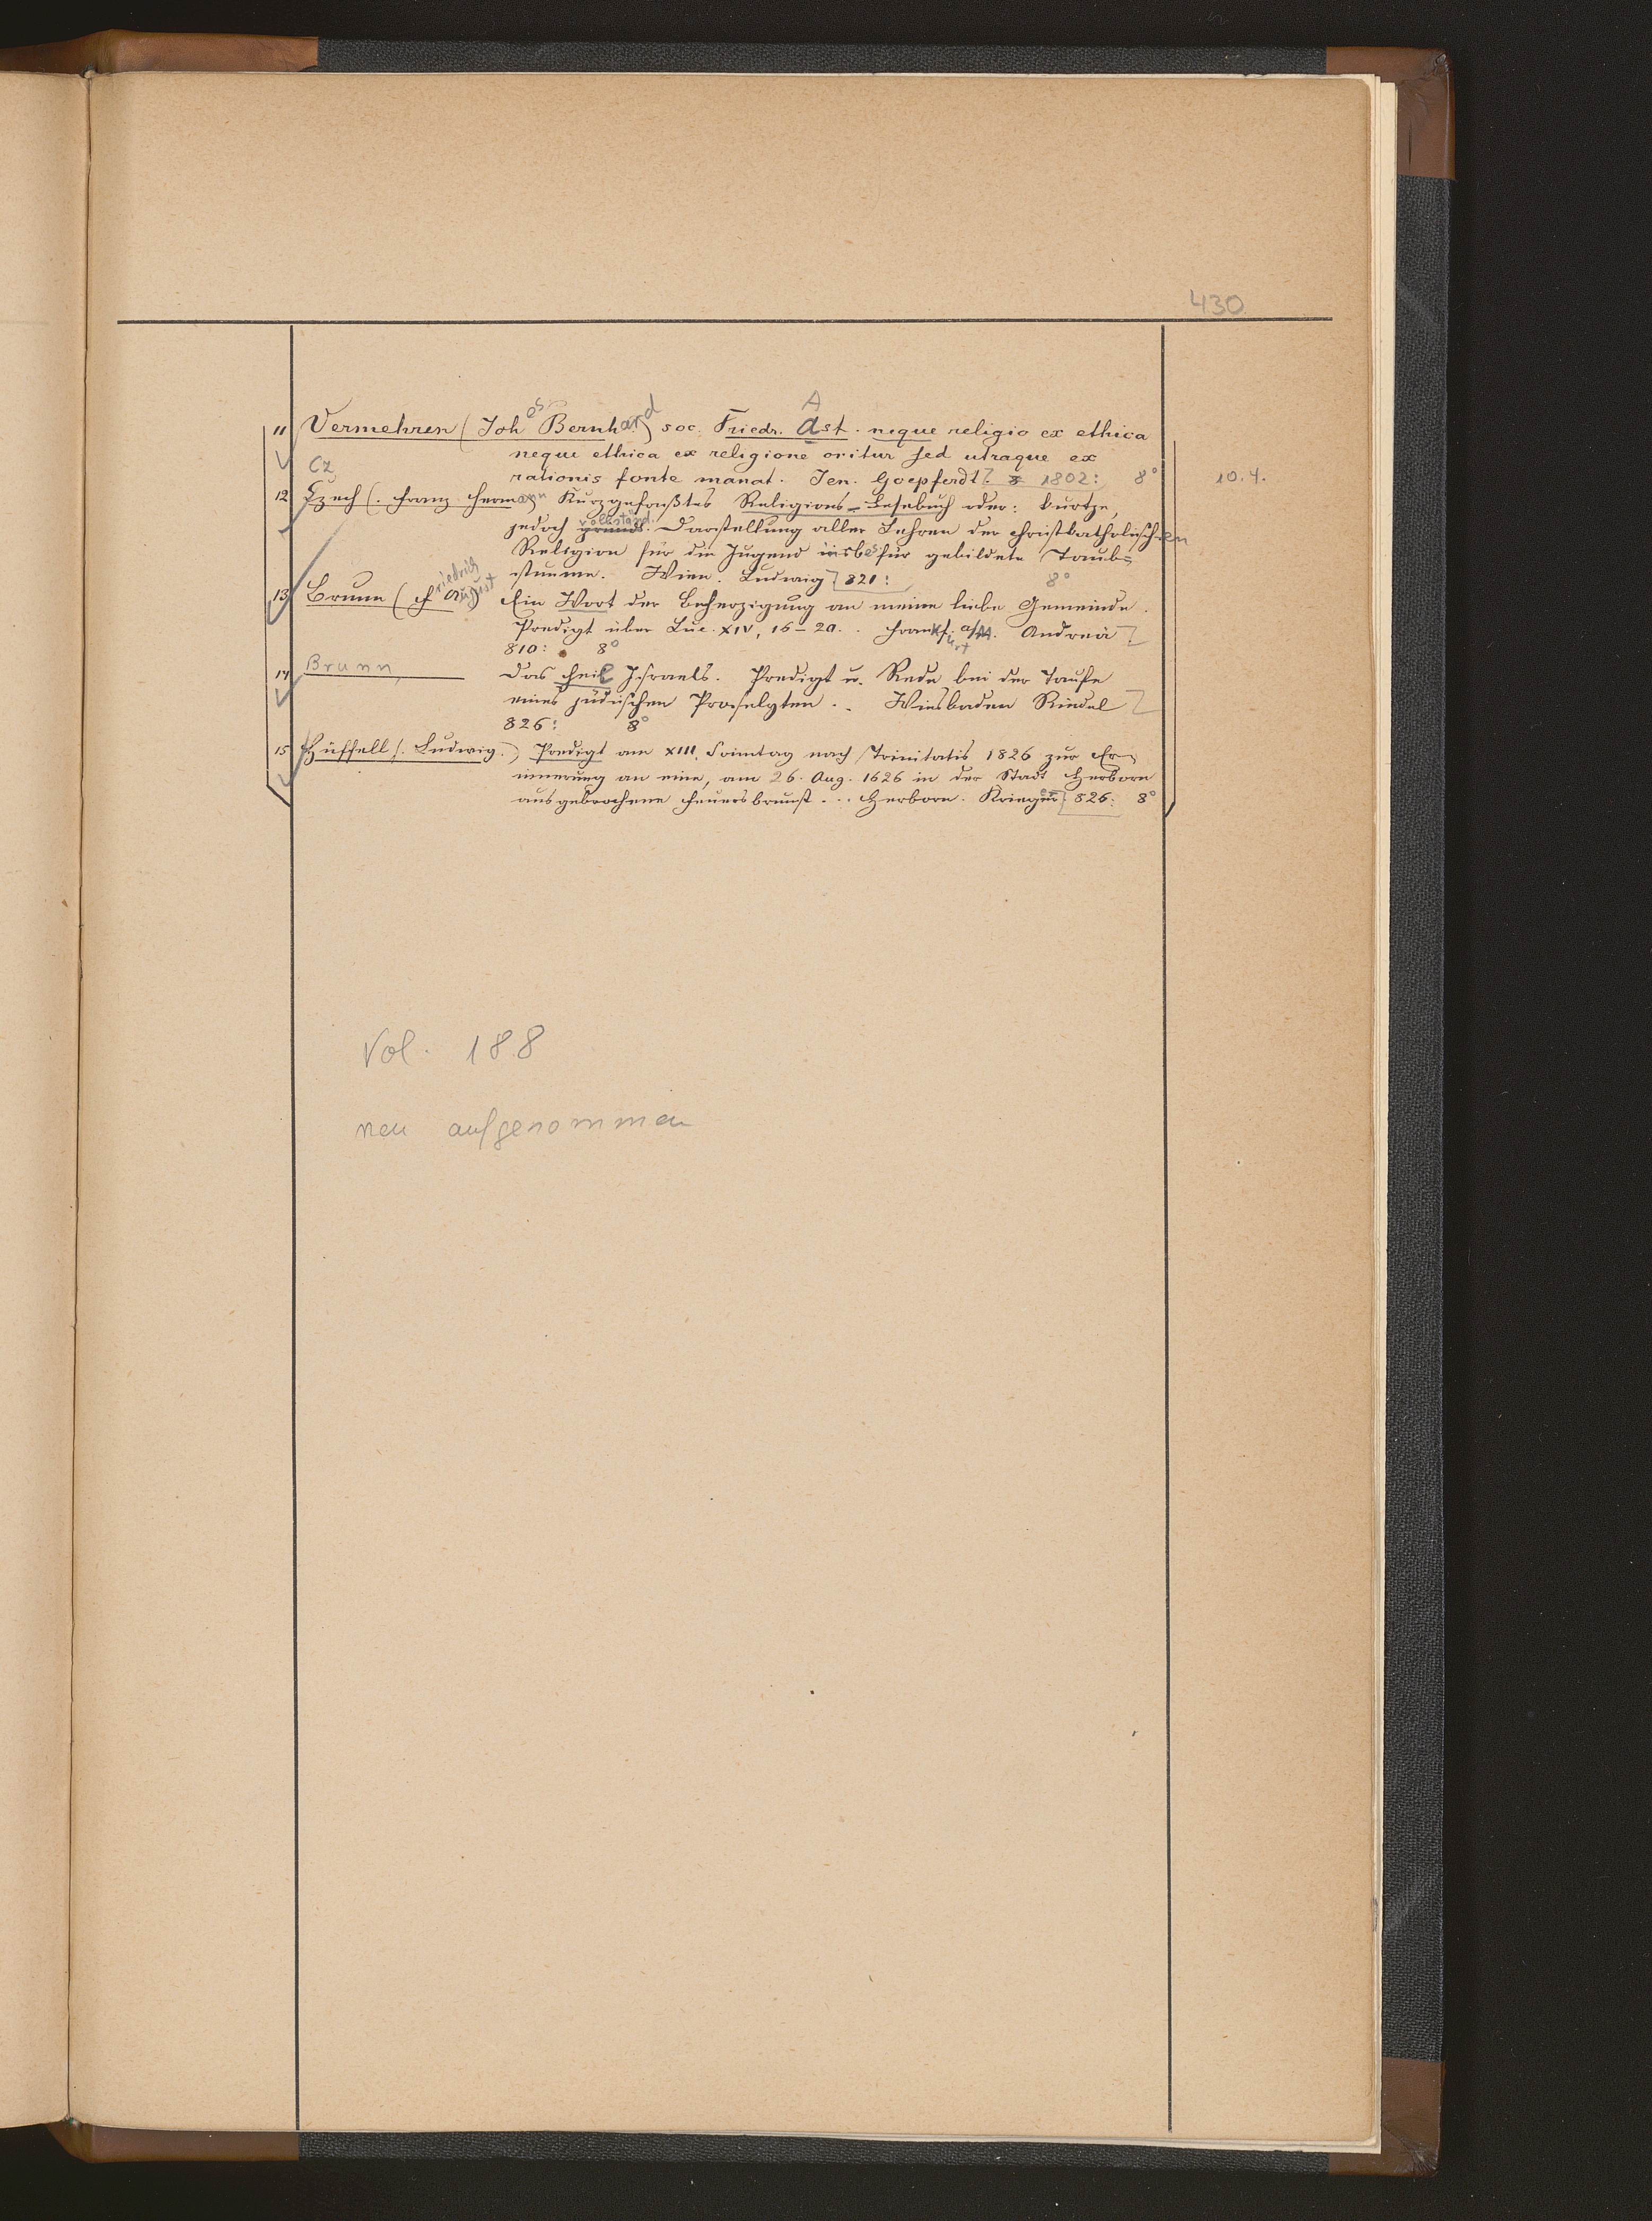 430
11 Vermehren (Johos Bernhard) soc. Friedr. Ast. neque religio ex ethica
neque ethica ex religione oritur sed utraque ex
rationis fonte manat. Jen. Goepferdt 1802: 8°
10.4.
12 Czech (. Franz Hermann Kurzgefaßtes Religions-Lesebuch oder: kurtze,
jedoch vollständ. Darstellung aller Lehren der christkatholischen
Religion für die Jugend insbes für gebildete Taub=
stumme. Wien. Ludwig 821: 8°
13 Brunn (Friedrich August) Ein Wort der Beherzigung an meine liebe Gemeinde.
Predigt über Luc. XIV, 16-20. . Frankfurt a/M. Andreä
810: 8°
14 Brunn, Das Heil Israels. Predigt u. Rede bei der Taufe
eines jüdischen Proselyten. . Wiesbaden Riedel
826: 8°
15 Hüffell (. Ludwig.) Predigt am XIII. Sonntag nach Trinitatis 1826 zur Er=
innerung an eine, am 26. Aug. 1626 in der Stadt Herborn
ausgebrochene Feuersbrunst . . . Herborn. Krieger 826: 8°
Vol. 188
neu aufgenommen